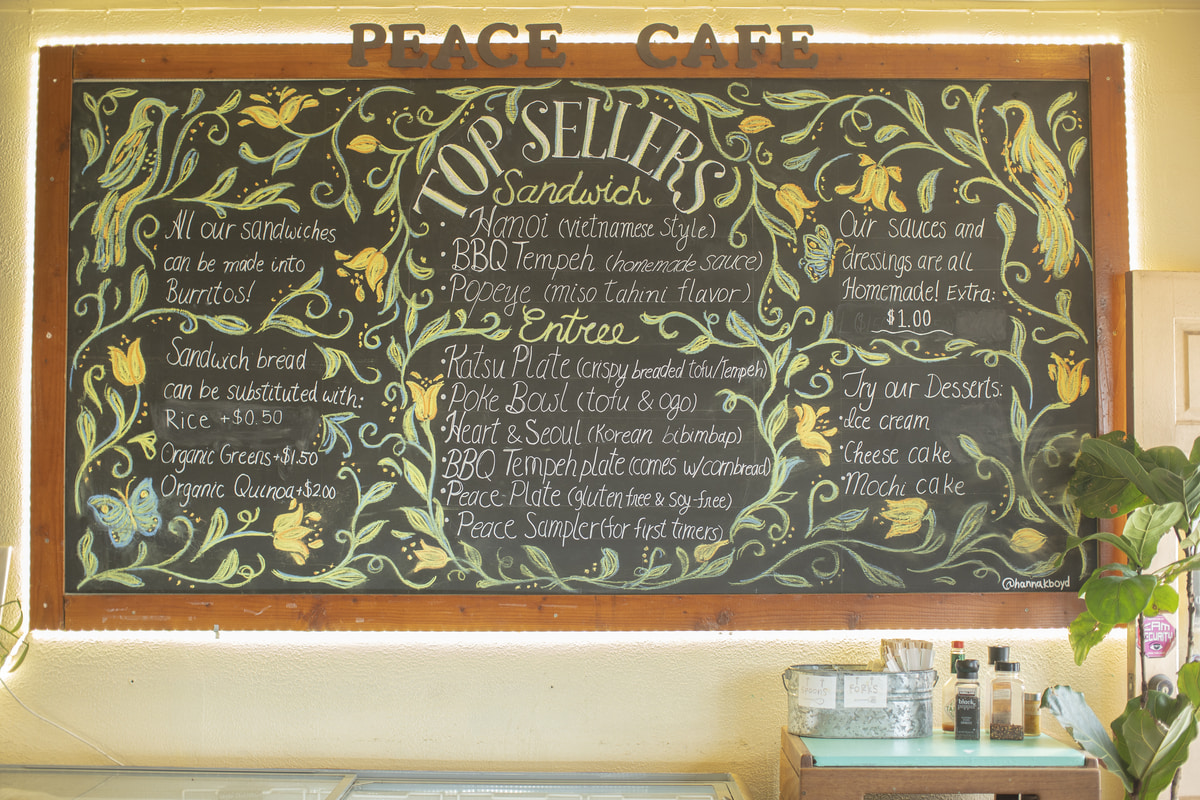 PEACE CAFE
TOP SELLERS
Sandwich
Hanoi (vietnamese style)
• BBQ Tempeh (homemade sauce)
• Popeye (miso tahini flavor)
Entree
Katsu Plate (crispy breaded tofu/tempeh)
• Poke Bowl (tofu & ogo)
• Heart & Seoul (Korean bibimbap)
• BBQ Tempeh plate (comes w/cornbread)
• Peace Plate (gluten free & soy-free)
• Peace Sampler (for first timers)
All our sandwiches
can be made into
Burritos!
Sandwich bread
can be substituted with:
Rice +$0.50
Organic Greens +$1.50
Organic Quinoa +$2.00
Our sauces and
dressings are all
Homemade! Extra:
$1.00
Try our Desserts:
• Ice cream
• Cheese cake
• Mochi cake
@hannakboyd
SPOONS
FORKS
black
pepper